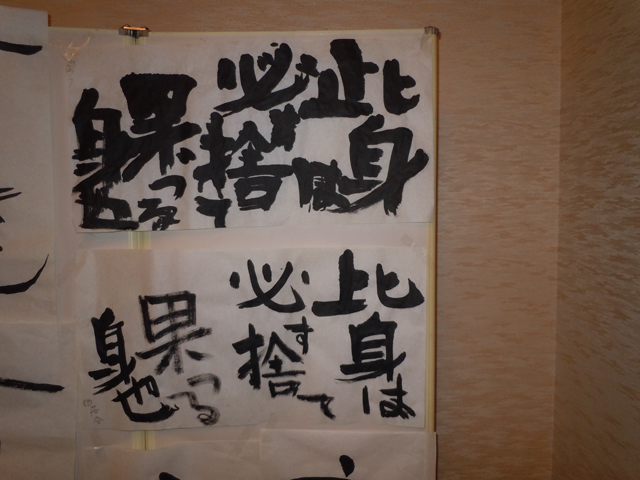 此身は
必ず捨て
果つる
身也
此身は
必す捨て
果つる
身也